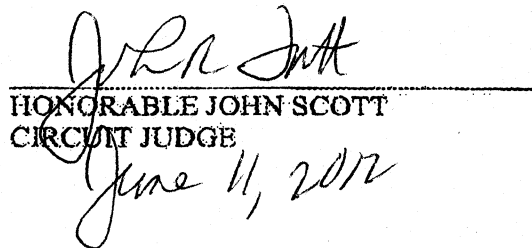 John Scott
HONORABLE JOHN SCOTT
CIRCUIT JUDGE
June 11, 2012